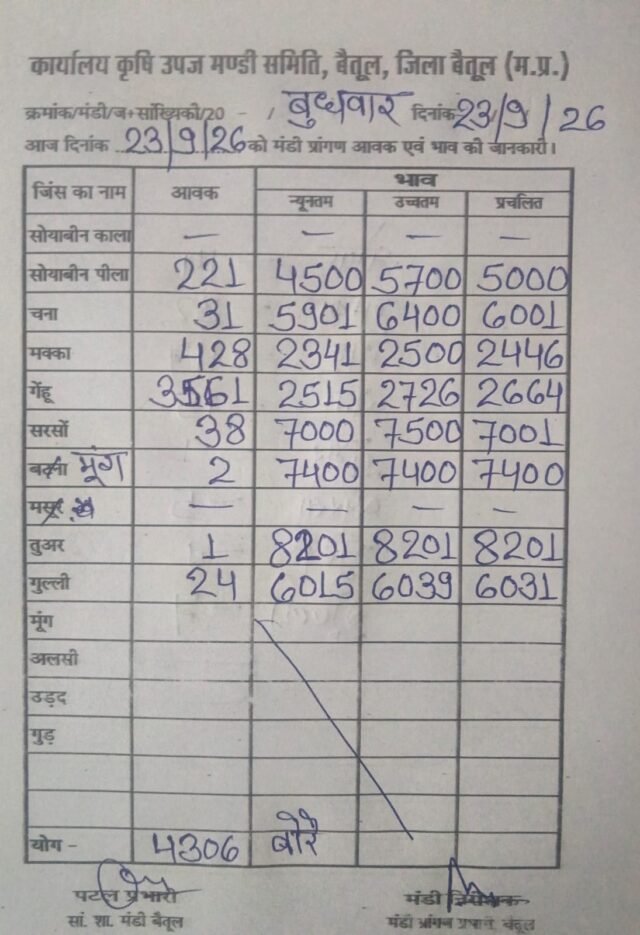 कार्यालय कृषि उपज मण्डी समिति, बैतूल, जिला बैतूल (म.प्र.)
क्रमांक/मंडी/ज+सांख्यिकी/20 - / बुधवार दिनांक 23/9/26
आज दिनांक 23/9/26 को मंडी प्रांगण आवक एवं भाव की जानकारी।
जिंस का नाम आवक भाव
न्यूनतम उच्चतम प्रचलित
सोयाबीन काला — — — —
सोयाबीन पीला 221 4500 5700 5000
चना 31 5901 6400 6001
मक्का 428 2341 2500 2446
गेंहू 3561 2515 2726 2664
सरसों 38 7000 7500 7001
मूंग 2 7400 7400 7400
मसूर — — — —
तुअर 1 8201 8201 8201
गुल्ली 24 6015 6039 6031
मूंग
अलसी
उड़द
गुड़
योग - 4306 बोरे
पटल प्रभारी मंडी
सां. शा. मंडी बैतूल मंडी प्रांगण प्रभारी बैतूल